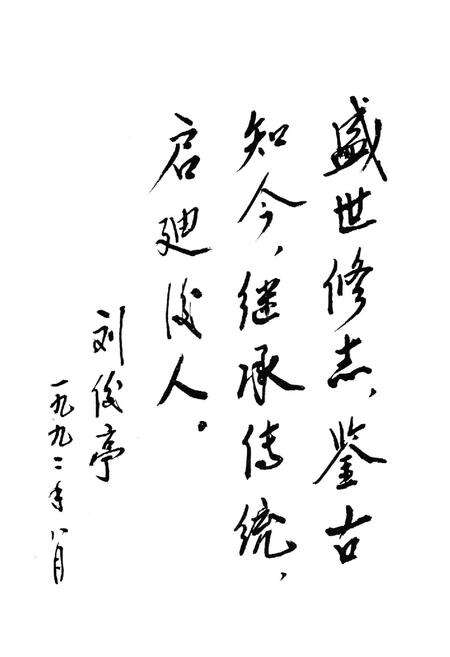 盛世修志，鉴古
知今，继承传统，
启迪后人。
刘俊亭
一九九二年八月